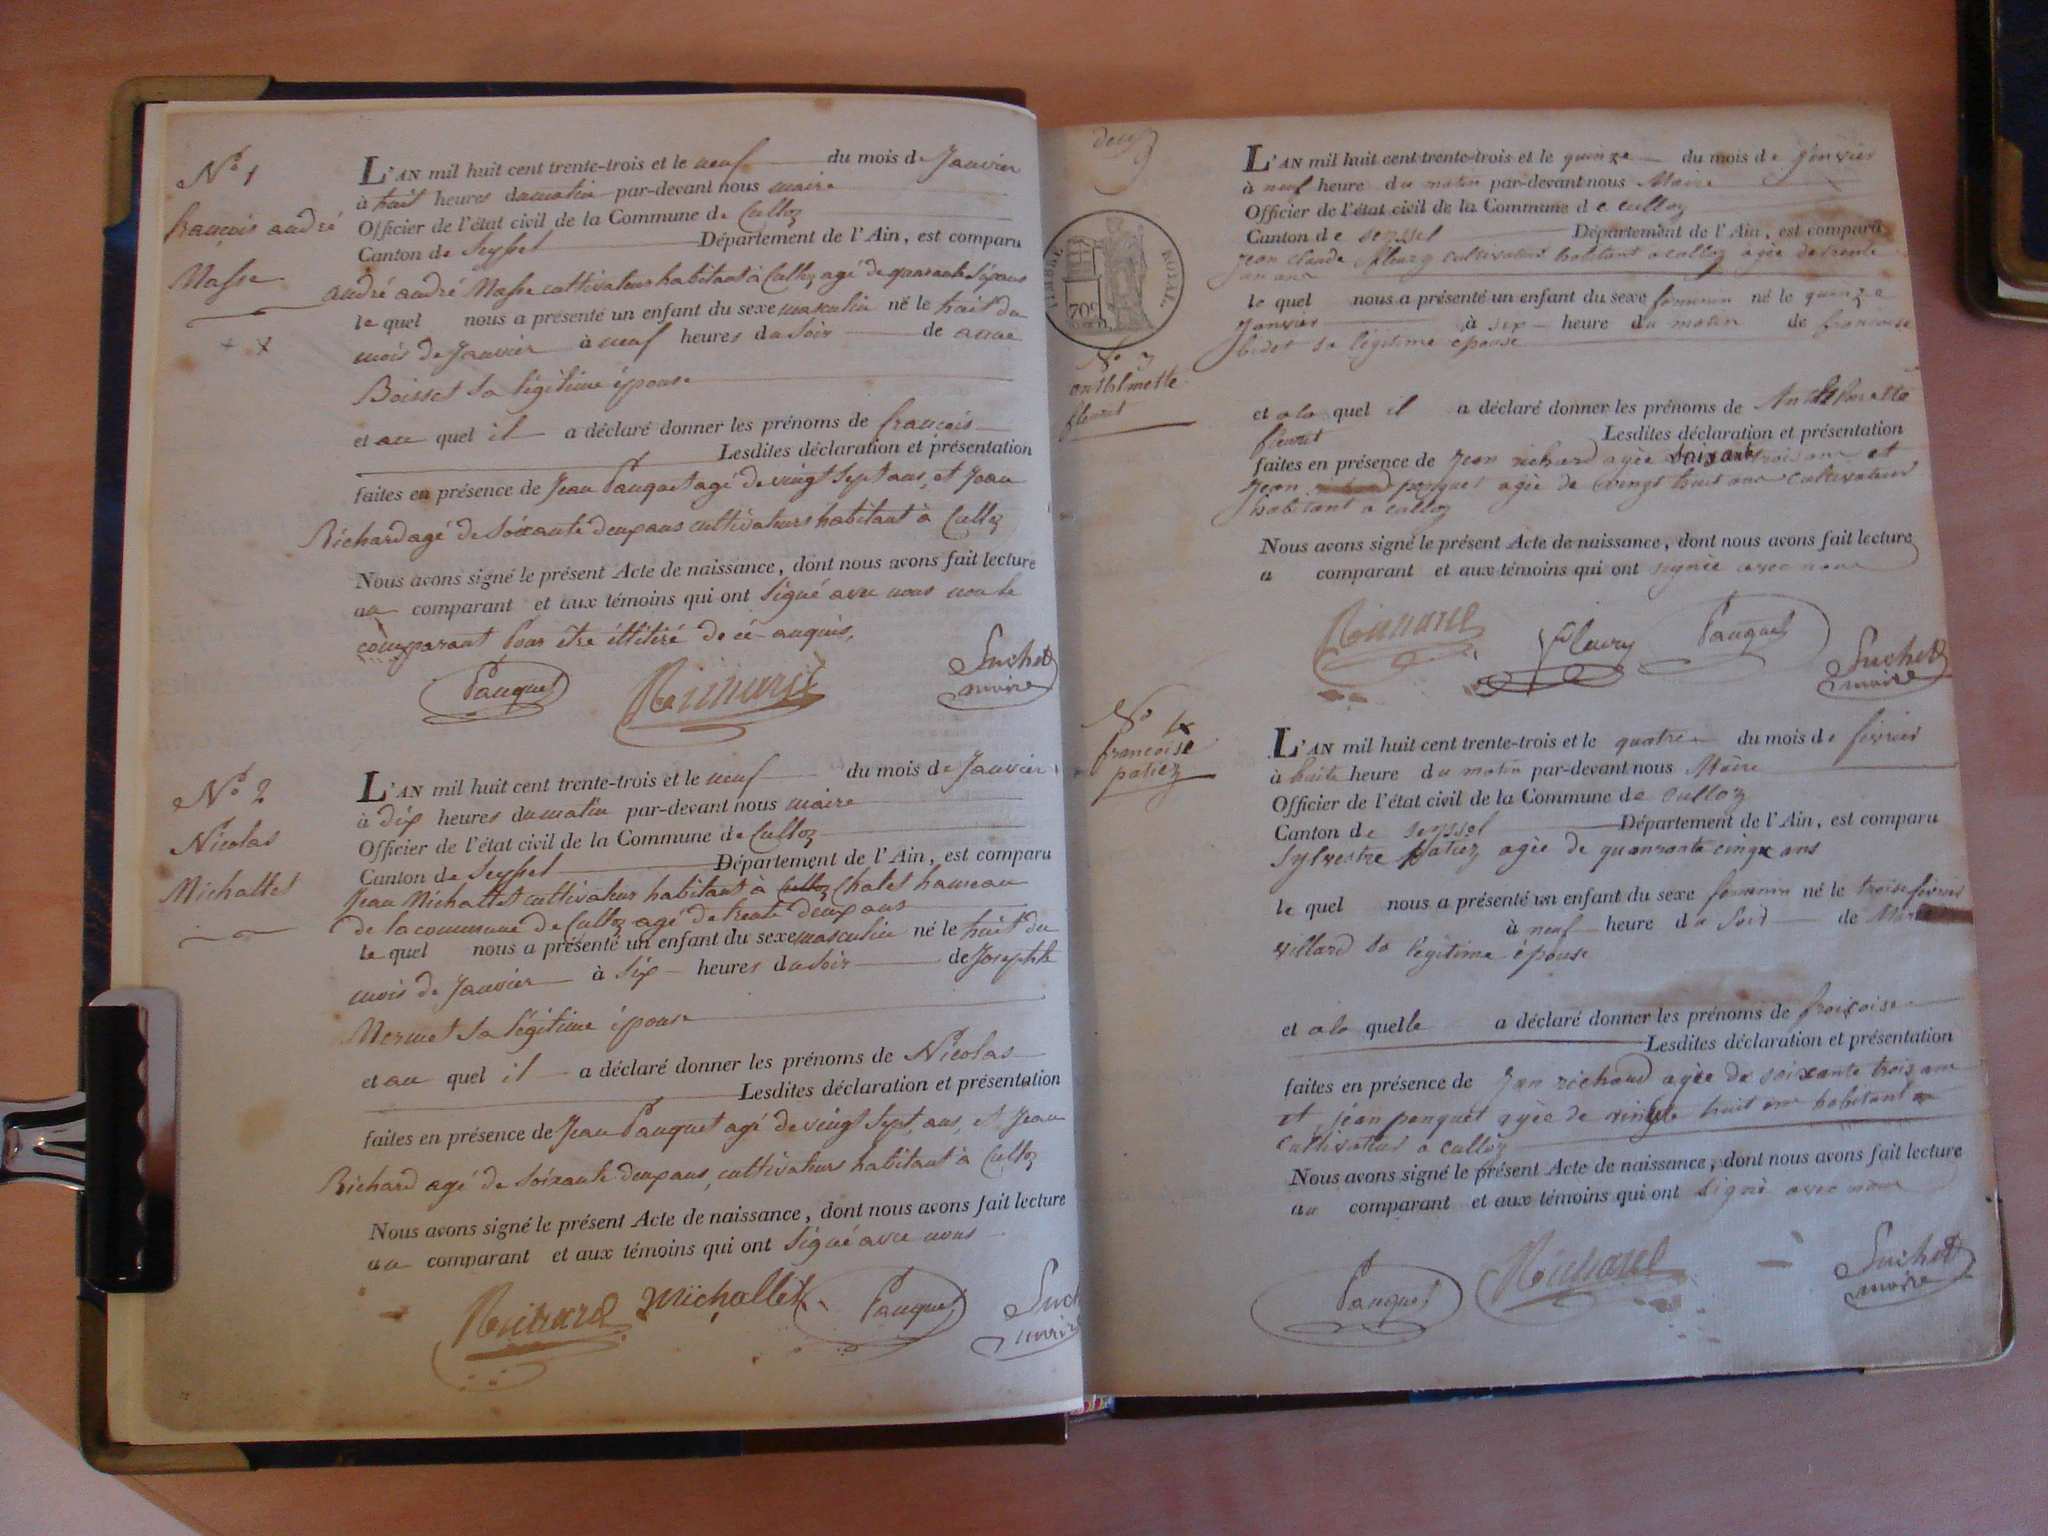 N° 1
françois andré
Masse
L'AN mil huit cent trente-trois et le neuf du mois de Janvier
à huit heures du matin par-devant nous maire
Officier de l'état civil de la Commune de Culloz
Canton de Seyssel Département de l'Ain, est comparu
andré andré Masse cultivateur habitant à Culloz agé de quarante sept ans
le quel nous a présenté un enfant du sexe masculin né le huit du
mois de Janvier à neuf heures du soir de anne
Boisset sa légitime épouse
et au quel il a déclaré donner les prénoms de françois
Lesdites déclaration et présentation
faites en présence de Jean Pauquet agé de vingt sept ans, et Jean
Richard agé de soixante deux ans cultivateurs habitant à Culloz
Nous avons signé le présent Acte de naissance, dont nous avons fait lecture
au comparant et aux témoins qui ont signé avec nous non le
comparant pour être illitiré de ce enquis.
Pauquet Richard Suchet
maire
N° 2
Nicolas
Michallet
L'AN mil huit cent trente-trois et le neuf du mois de Janvier
à dix heures du matin par-devant nous maire
Officier de l'état civil de la Commune de Culloz
Canton de Seyssel Département de l'Ain, est comparu
Jean Michallet cultivateur habitant à Culloz Chatel hameau
de la commune de Culloz agé de trente deux ans
le quel nous a présenté un enfant du sexe masculin né le huit du
mois de Janvier à six heures du soir de Josephte
Mermet sa légitime épouse
et au quel il a déclaré donner les prénoms de Nicolas
Lesdites déclaration et présentation
faites en présence de Jean Pauquet agé de vingt sept ans, et Jean
Richard agé de soixante deux ans, cultivateurs habitant à Culloz
Nous avons signé le présent Acte de naissance, dont nous avons fait lecture
au comparant et aux témoins qui ont signé avec nous
Richard Michallet Pauquet Such
maire
deux
TIMBRE ROYAL
70c
N° 3
anthlmette
fleuret
L'AN mil huit cent trente-trois et le quinze du mois de Janvier
à neuf heure du matin par-devant nous Maire
Officier de l'état civil de la Commune de culloz
Canton de seyssel Département de l'Ain, est comparu
Jean claude fleury cultivateur habitant a culloz agée de trente
le quel nous a présenté un enfant du sexe féminin né le quinze
Janvier à six heure du matin de francoise
bidet sa légitime épouse
et a la quel il a déclaré donner les prénoms de Anthelmette
fleuret Lesdites déclaration et présentation
faites en présence de Jean richard agée soixante trois ans et
Jean richard pauquet agée de vingt huit ans cultivateur
habitant a culloz
Nous avons signé le présent Acte de naissance, dont nous avons fait lecture
a comparant et aux témoins qui ont signée avec nous
Richard Fleury Pauquet Suchet
maire
N° 4
francoise
patiez
L'AN mil huit cent trente-trois et le quatre du mois de février
à huite heure du matin par-devant nous Maire
Officier de l'état civil de la Commune de culloz
Canton de seyssel Département de l'Ain, est comparu
Sylvestre patiez agée de quanrante cinq ans
le quel nous a présenté un enfant du sexe féminin né le trois février
à neuf heure du soir de Marie
villard sa légitime épouse
et a la quelle a déclaré donner les prénoms de froiçoise
Lesdites déclaration et présentation
faites en présence de Jan richard agée de soixante trois ans
et jéan panquet agée de vingte huit ans habitant
cultivateur a culloz
Nous avons signé le présent Acte de naissance, dont nous avons fait lecture
au comparant et aux témoins qui ont signé avec nous
Pauquet Richard Suchet
maire